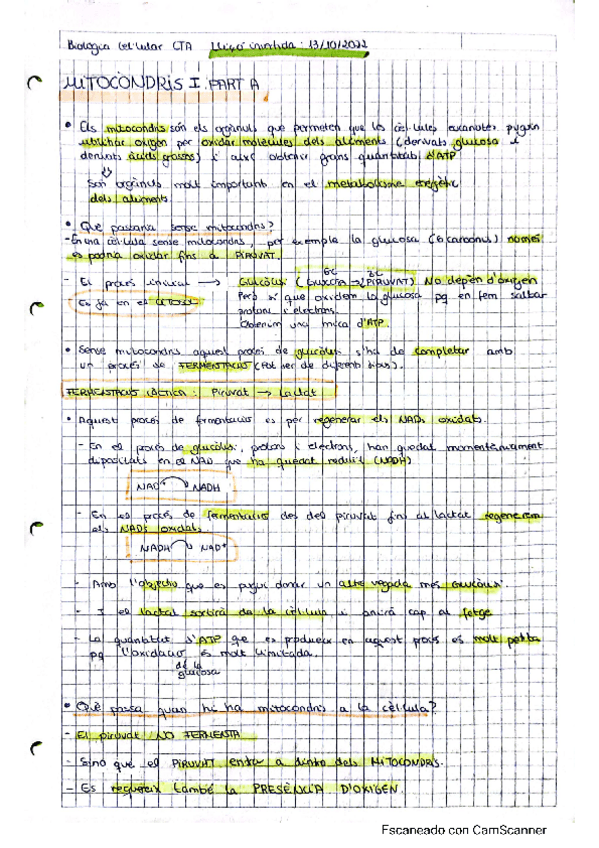 Biologia cel·lular CTA Lliçó invertida: 13/10/2022
MITOCONDRIS I. PART A
• Els mitocondris són els orgànuls que permeten que les cèl·lules eucariotes puguin
utilitzar oxigen per oxidar molècules dels aliments (derivats glucosa i
derivats àcids grassos) i així obtenir grans quantitats d'ATP
⇓
Són orgànuls molt importants en el metabolisme energètic
dels aliments
• Què passaria sense mitocondris?
- En una cèl·lula sense mitocondris, per exemple la glucosa (6 carbonis) només
es podria oxidar fins a PIRUVAT.
- El procés inicial → GLICÒLISI (GLUCOSA → 2 PIRUVAT) NO depèn d'oxigen
6C 3C
Es fa en el citosol
Però sí que oxidem la glucosa pq en fem saltar
protons i electrons.
Obtenim una mica d'ATP.
• Sense mitocondris aquest procés de glicòlisi s'ha de completar amb
un procés de FERMENTACIÓ (Pot ser de diferents tipus).
FERMENTACIÓ LÀCTICA: Piruvat → Lactat
• Aquest procés de fermentació es per regenerar els NADs oxidats.
- En el procés de glicòlisi, protons i electrons, han quedat momentàniament
dipositats en el NAD que ha quedat reduït (NADH)
NAD⁺ NADH
- En el procés de fermentació des del piruvat fins al lactat regenerem
els NADs oxidats
NADH NAD⁺
- Amb l'objectiu que es pugui donar un altre vegada més GLICÒLISI.
- I el lactat sortirà de la cèl·lula i anirà cap al fetge
- La quantitat d'ATP que es produeix en aquest procés es molt petita
pq l'oxidació és molt limitada.
de la
glucosa
• Què passa quan hi ha mitocondris a la cèl·lula?
- El piruvat NO FERMENTA
- Sinó que el PIRUVAT entra a dintre dels MITOCONDRIS.
- Es requereix també la PRESÈNCIA D'OXIGEN.
Escaneado con CamScanner